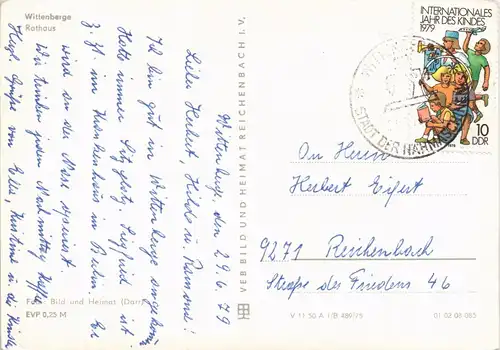 Wittenberge
Rathaus
Wittenberge, den 29.6.79
Liebe Herbert, Hilde u. Ramona!
Ich bin gut in Wittenberge angekommen
Hatte immer Sitzplatz. Siegfried ist
z. Zt. im Krankenhaus in Berlin. Er
wird an der Nase operiert.
Wir trinken jeden Nachmittag Kaffee
Herzl. Grüße von Ella, Kurt u. der Kinder
Foto: Bild und Heimat (Darr)
EVP 0,25 M
VEB BILD UND HEIMAT REICHENBACH I. V.
INTERNATIONALES
JAHR DES KINDES
1979
10
DDR
STADT DER
An Herrn
Herbert Eifert
9271 Reichenbach
Straße des Friedens 46
V 11 50 A 1/B 489/78
01 03 08 085